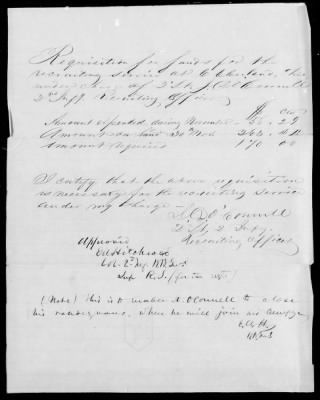 Requisition for funds for the
recruiting service at
under charge of 2d Lt. J. D. O'Connell
2nd Infy. Recruiting Officer
$ cts
Amount expended during November
Amount on hand 30th Nov.
Amount required
I certify that the above requisition
is necessary for the recruiting service
under my charge
J. D. O'Connell
2d Lt. 2 Infy.
Recruiting Officer
Approved
E A Hitchcock
Col. 2d Inf.
Sup R. S.
(Note) This is to enable Lt. O'Connell to close
his rendezvous, when he will join his Company
E. A. H.